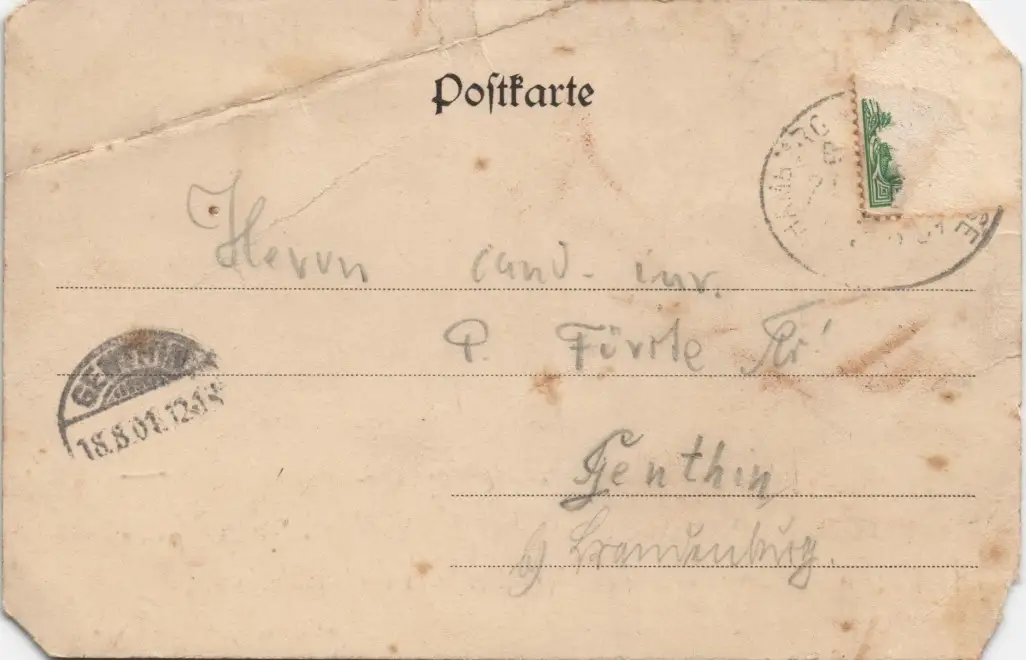 Postkarte
Herrn cand. iur.
P. Fürste
Genthin
b/ Brandenburg.
18.8.01.12-1